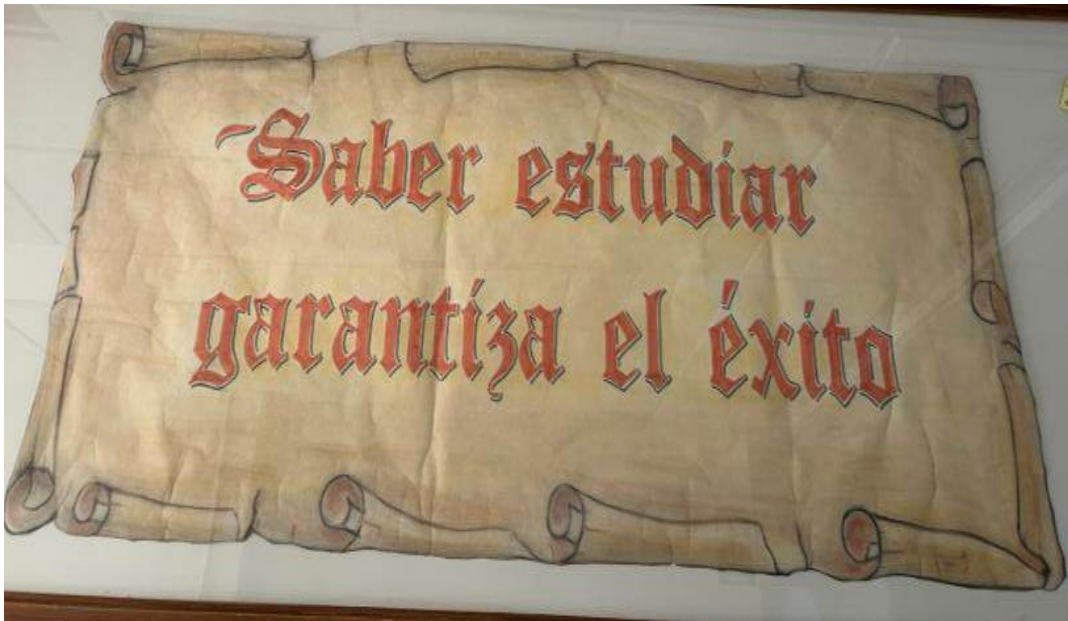 Saber estudiar
garantiza el éxito